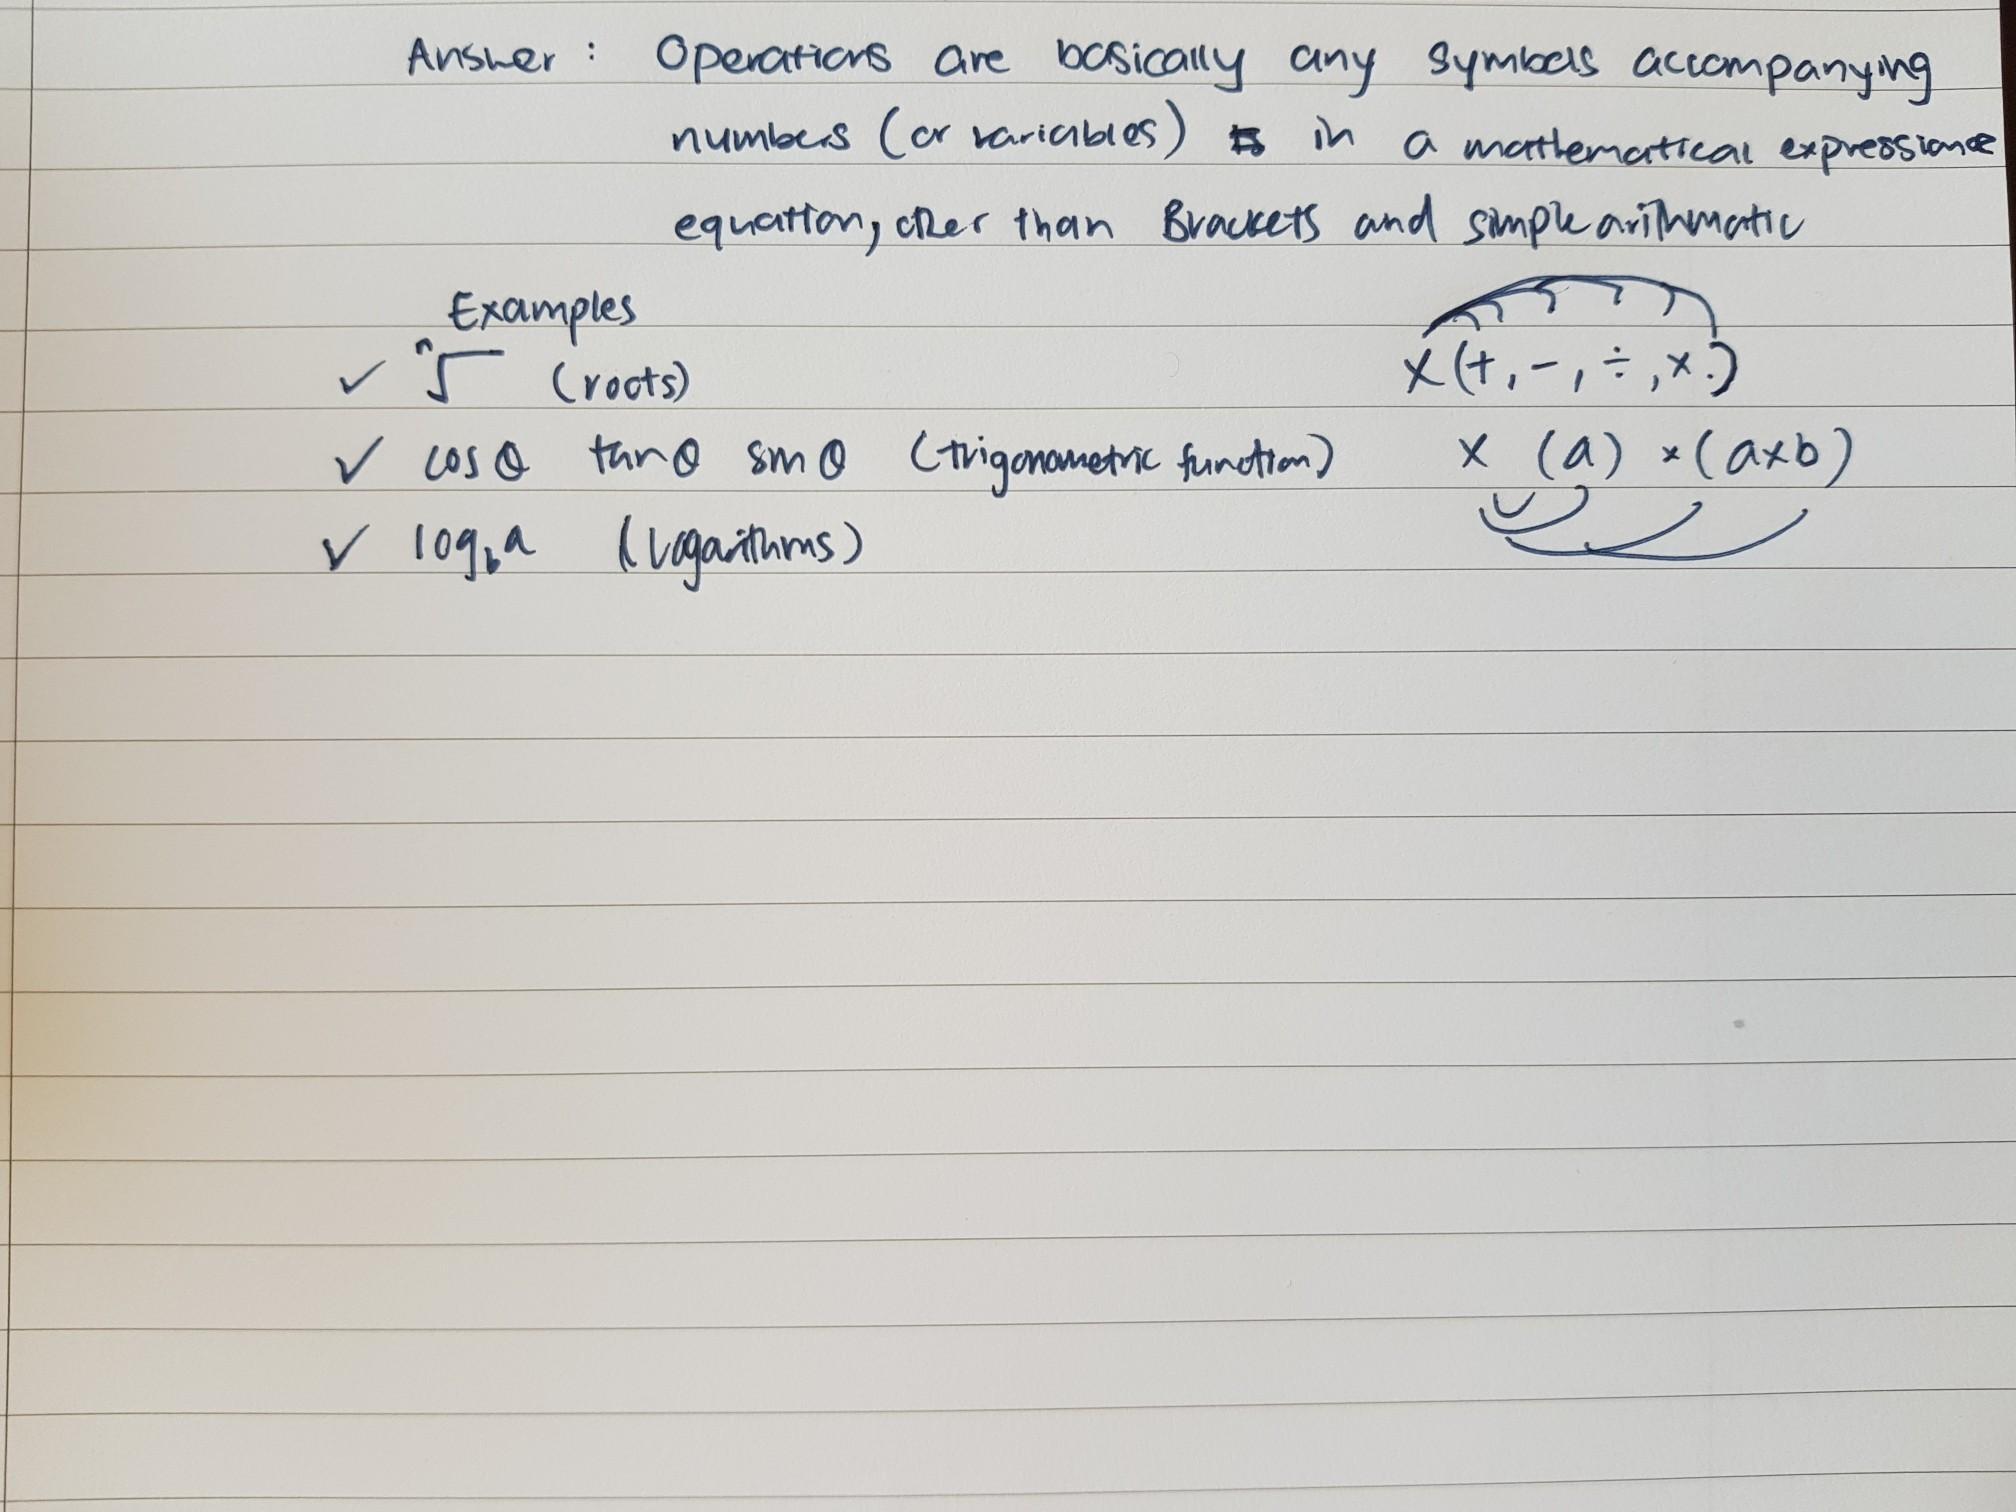 Answer : Operations are basically any symbols accompanying
numbers (or variables) in a mathematical expression
equation, other than Brackets and simple arithmatic
Examples
✓ ⁿ√ (roots)
x (+, -, ÷, x.)
✓ cos θ tan θ sin θ (trigonometric function)
x (a) x (axb)
✓ log_b a (logarithms)